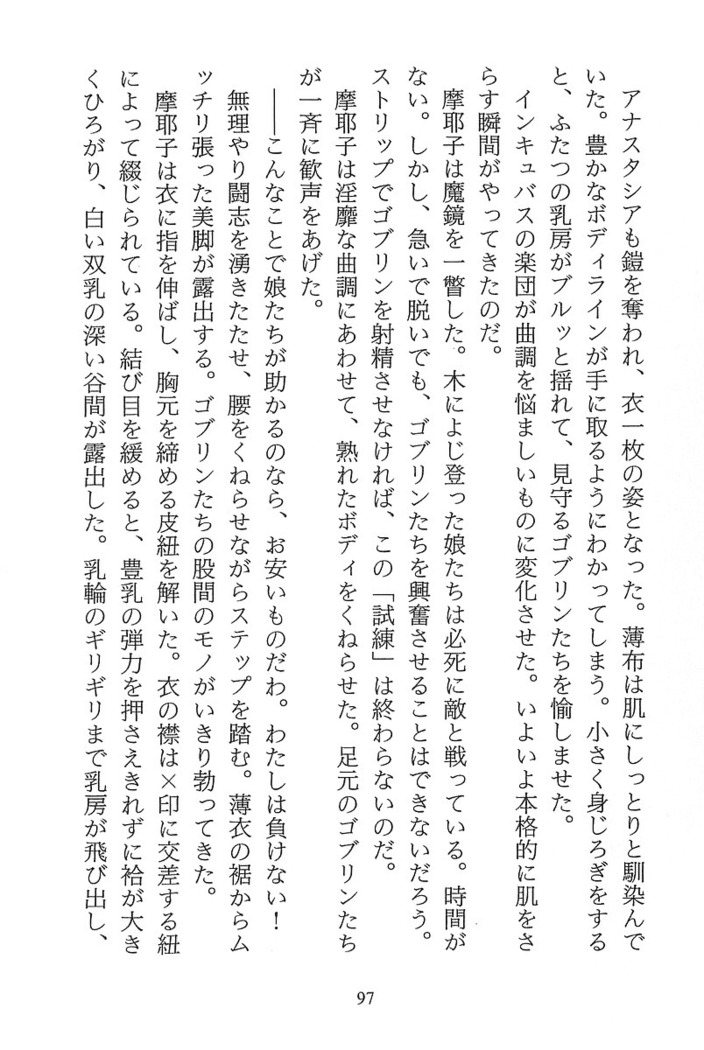 アナスタシアも鎧を奪われ、衣一枚の姿となった。薄布は肌にしっとりと馴染んで
いた。豊かなボディラインが手に取るようにわかってしまう。小さく身じろぎをする
と、ふたつの乳房がブルッと揺れて、見守るゴブリンたちを愉しませた。
インキュバスの楽団が曲調を悩ましいものに変化させた。いよいよ本格的に肌をさ
らす瞬間がやってきたのだ。
摩耶子は魔鏡を一瞥した。木によじ登った娘たちは必死に敵と戦っている。時間が
ない。しかし、急いで脱いでも、ゴブリンたちを興奮させることはできないだろう。
ストリップでゴブリンを射精させなければ、この「試練」は終わらないのだ。
摩耶子は淫靡な曲調にあわせて、熟れたボディをくねらせた。足元のゴブリンたち
が一斉に歓声をあげた。
――こんなことで娘たちが助かるのなら、お安いものだわ。わたしは負けない！
無理やり闘志を湧きたたせ、腰をくねらせながらステップを踏む。薄衣の裾からム
ッチリ張った美脚が露出する。ゴブリンたちの股間のモノがいきり勃ってきた。
摩耶子は衣に指を伸ばし、胸元を締める皮紐を解いた。衣の襟は×印に交差する紐
によって綴じられている。結び目を緩めると、豊乳の弾力を押さえきれずに袷が大き
くひろがり、白い双乳の深い谷間が露出した。乳輪のギリギリまで乳房が飛び出し、
97